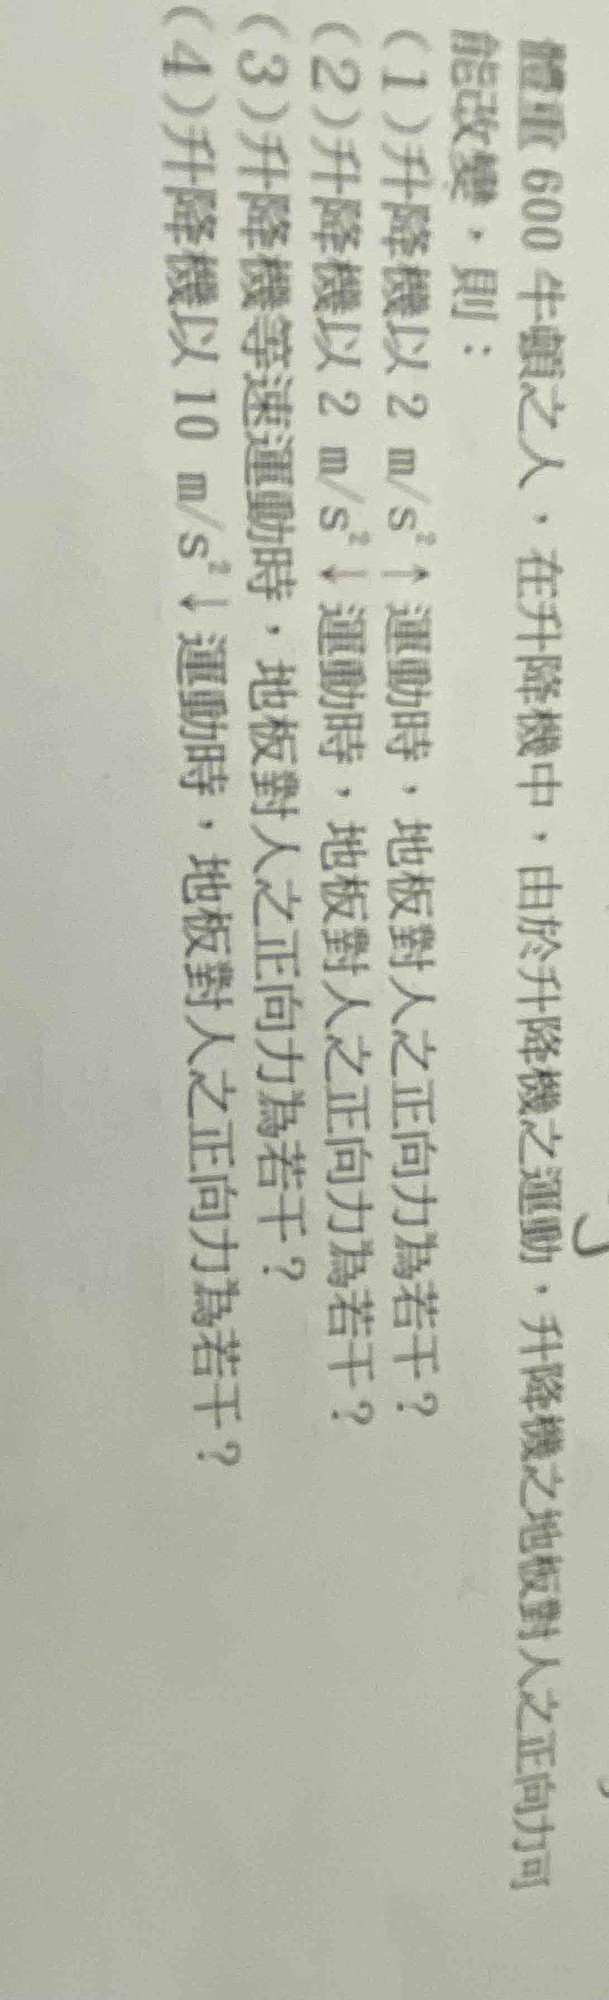 體重 600 牛頓之人，在升降機中，由於升降機之運動，升降機之地板對人之正向力可
能改變，則：
(1)升降機以 2 m/s²↑運動時，地板對人之正向力為若干？
(2)升降機以 2 m/s²↓運動時，地板對人之正向力為若干？
(3)升降機等速運動時，地板對人之正向力為若干？
(4)升降機以 10 m/s²↓運動時，地板對人之正向力為若干？